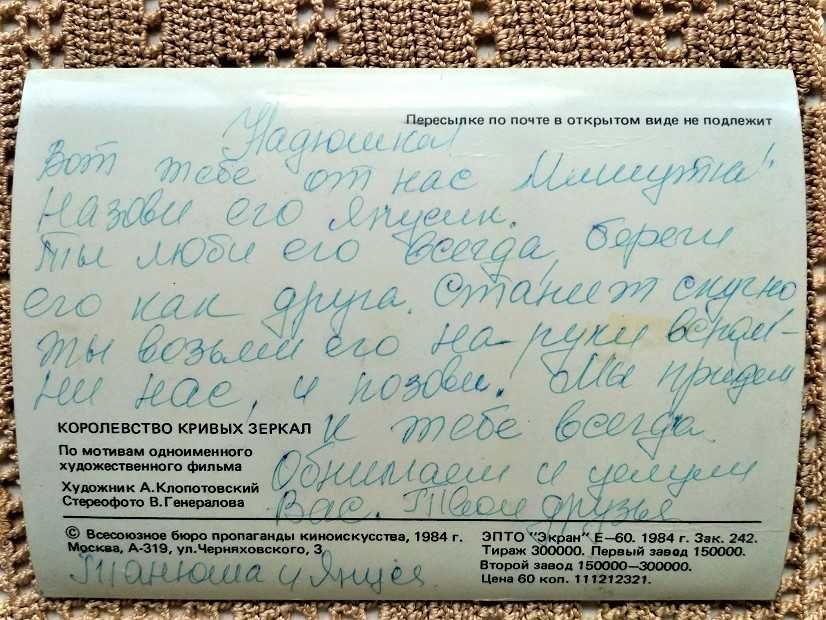 Пересылке по почте в открытом виде не подлежит
Надюшка!
Вот тебе от нас Мишутка!
Назови его Янусик.
Ты люби его всегда, береги
его как друга. Станит скучно
ты возьми его на руки вспом-
ни нас, и позови. Мы придем
к тебе всегда.
Обнимаем и целуем
Вас. Твои друзья
Танюша и
КОРОЛЕВСТВО КРИВЫХ ЗЕРКАЛ
По мотивам одноименного
художественного фильма
Художник А.Клопотовский
Стереофото В.Генералова
© Всесоюзное бюро пропаганды киноискусства, 1984 г.
Москва, А-319, ул.Черняховского, 3
ЭПТО "Экран" Е—60. 1984 г. Зак. 242.
Тираж 300000. Первый завод 150000.
Второй завод 150000—300000.
Цена 60 коп. 111212321.